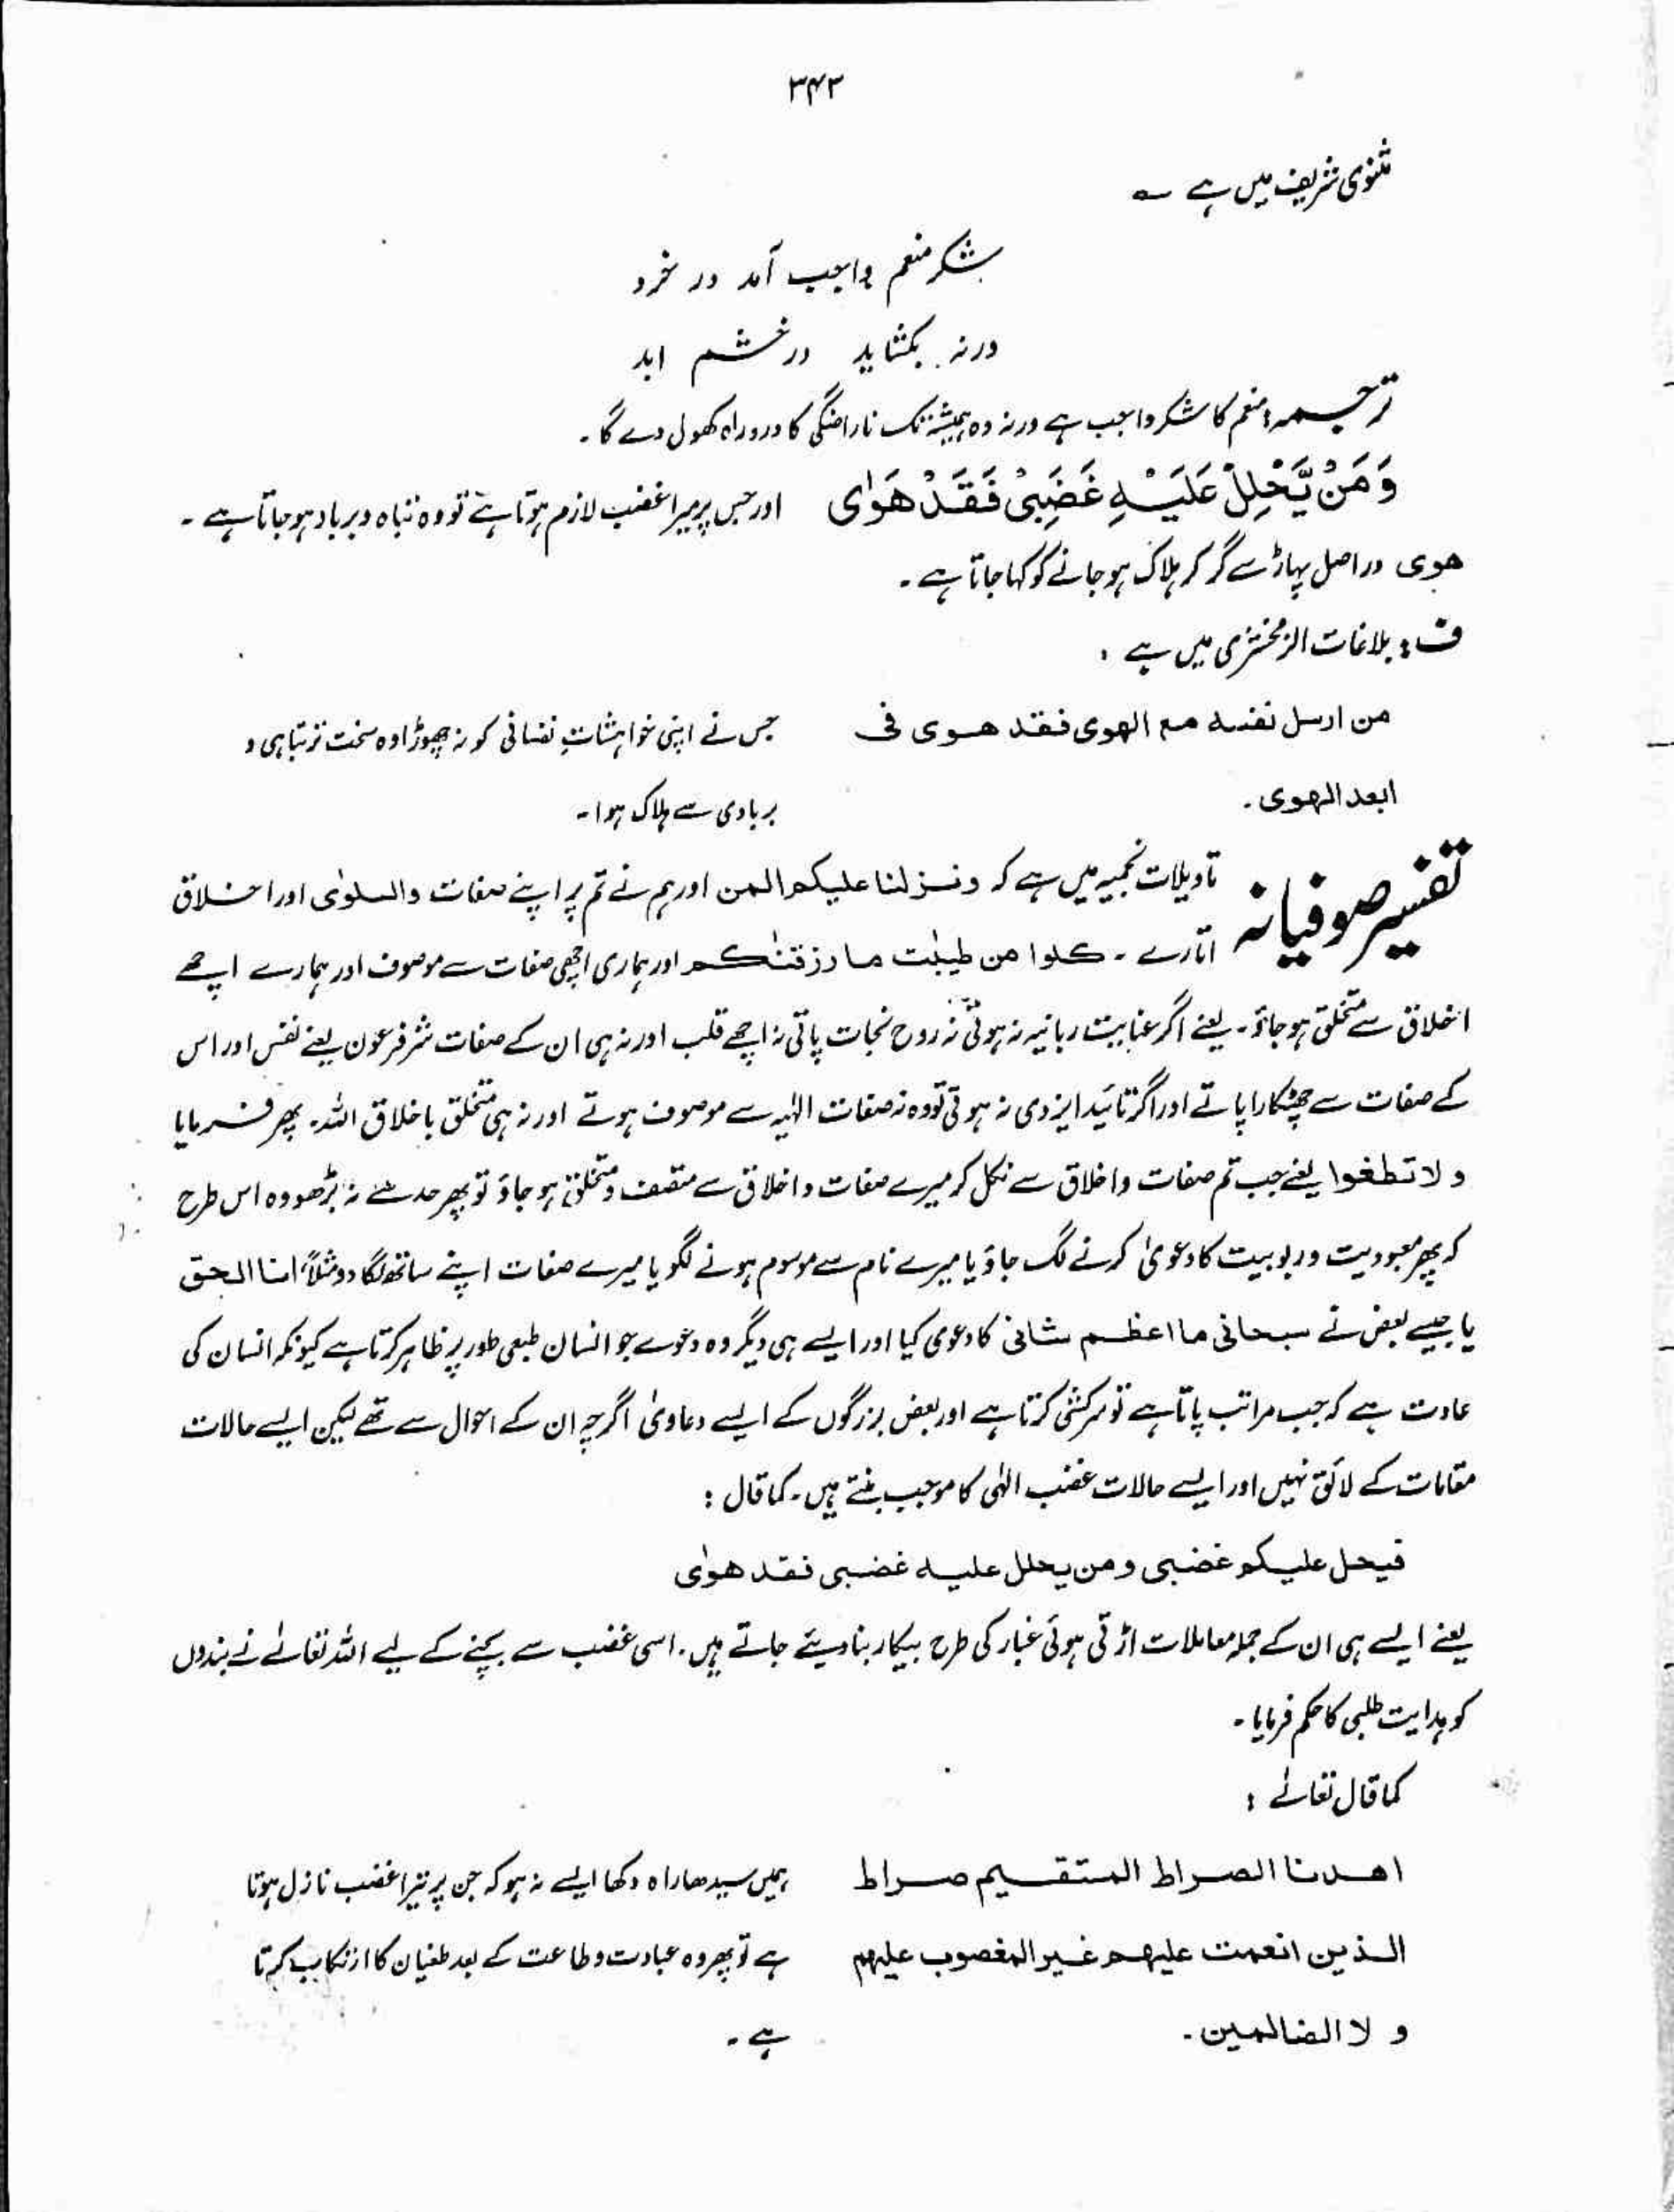 ۳۴۲
مثنوی شریف میں ہے ؎
شکر منعم واجب آمد در خرد
ورنہ بکشاید در خشم ابد
ترجمہ: منعم کا شکر واجب ہے ورنہ وہ ہمیشہ تک ناراضگی کا دروراہ کھول دے گا۔
وَمَنْ یَّحْلِلْ عَلَیْہِ غَضَبِیْ فَقَدْ ھَوٰی اور جس پر میرا غضب لازم ہوتا ہے تو وہ تباہ و برباد ہوجاتا ہے۔
ھوی دراصل پہاڑ سے گر کر ہلاک ہو جانے کو کہا جاتا ہے۔
ف: بلاغات الزمخشری میں ہے:
من ارسل نفسہ مع الھوی فقد ھوی فی جس نے اپنی خواہشاتِ نفسانی کو نہ چھوڑا وہ سخت تر تباہی و
ابعد الھوی۔ بربادی سے ہلاک ہوا۔
تفسیر صوفیانہ تاویلات نجمیہ میں ہے کہ ونزلنا علیکم المن اور ہم نے تم پر اپنے صفات والسلوٰی اور اخلاق
اتارے۔ کلوا من طیبٰت ما رزقنٰکم اور ہماری اچھی صفات سے موصوف اور ہمارے اچھے
اخلاق سے متخلق ہو جاؤ۔ یعنے اگر عنایت ربانیہ نہ ہوتی نہ روح نجات پاتی نہ اچھے قلب اور نہ ہی ان کے صفات شر فرعون یعنے نفس اور اس
کے صفات سے چھٹکارا پاتے اور اگر تائید ایزدی نہ ہوتی تو وہ نہ صفات الٰہیہ سے موصوف ہوتے اور نہ ہی متخلق باخلاق اللہ۔ پھر فرمایا
ولا تطغوا یعنے جب تم صفات و اخلاق سے نکل کر میرے صفات و اخلاق سے متصف و متخلق ہو جاؤ تو پھر حد سے نہ بڑھو وہ اس طرح
کہ پھر معبودیت و ربوبیت کا دعویٰ کرنے لگ جاؤ یا میرے نام سے موسوم ہونے لگو یا میرے صفات اپنے ساتھ لگا دو مثلاً انا الحق
یا جیسے بعض نے سبحانی ما اعظم شانی کا دعوی کیا اور ایسے ہی دیگر وہ دعوے جو انسان طبعی طور پر ظاہر کرتا ہے کیونکہ انسان کی
عادت ہے کہ جب مراتب پاتا ہے تو سرکشی کرتا ہے اور بعض بزرگوں کے ایسے دعاویٰ اگرچہ ان کے احوال سے تھے لیکن ایسے حالات
مقامات کے لائق نہیں اور ایسے حالات غضب الٰہی کا موجب بنتے ہیں۔ کما قال:
فیحل علیکم غضبی ومن یحلل علیہ غضبی فقد ھوٰی
یعنے ایسے ہی ان کے جملہ معاملات اڑتی ہوئی غبار کی طرح بیکار بنا دیئے جاتے ہیں۔ اسی غضب سے بچنے کے لیے اللہ تعالےٰ نے بندوں
کو ہدایت طلبی کا حکم فرمایا۔
کما قال تعالےٰ:
اھدنا الصراط المستقیم صراط ہمیں سیدھا راہ دکھا ایسے نہ ہو کہ جن پر تیرا غضب نازل ہوتا
الذین انعمت علیھم غیر المغصوب علیہم ہے تو پھر وہ عبادت و طاعت کے بعد طغیان کا ارتکاب کرتا
ولا الضالمین۔ ہے۔